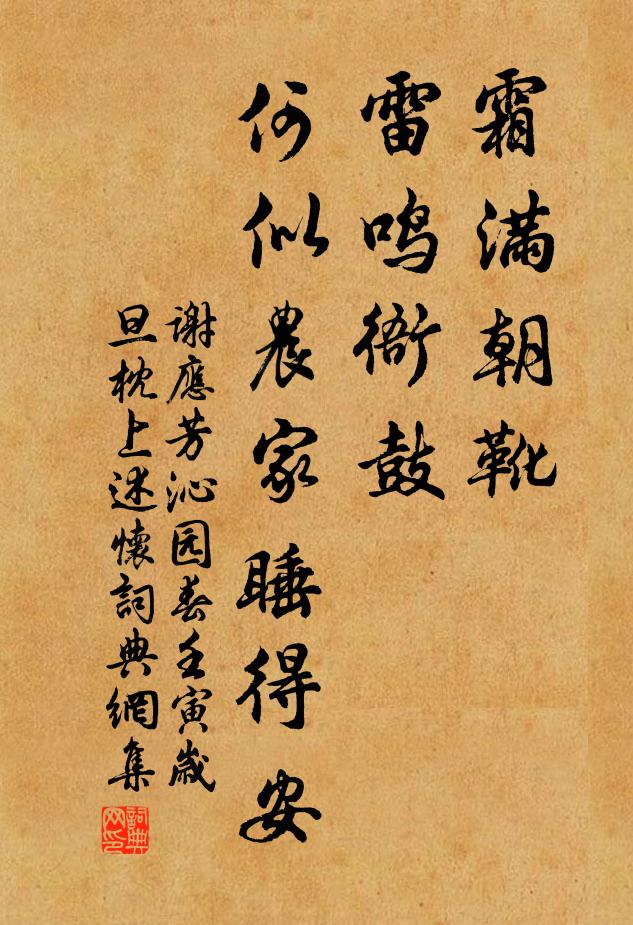 霜满朝靴
雷鸣衙鼓
何似農家睡得安
謝應芳沁园春壬寅歳
旦枕上述懷詞典網集
詞典网印